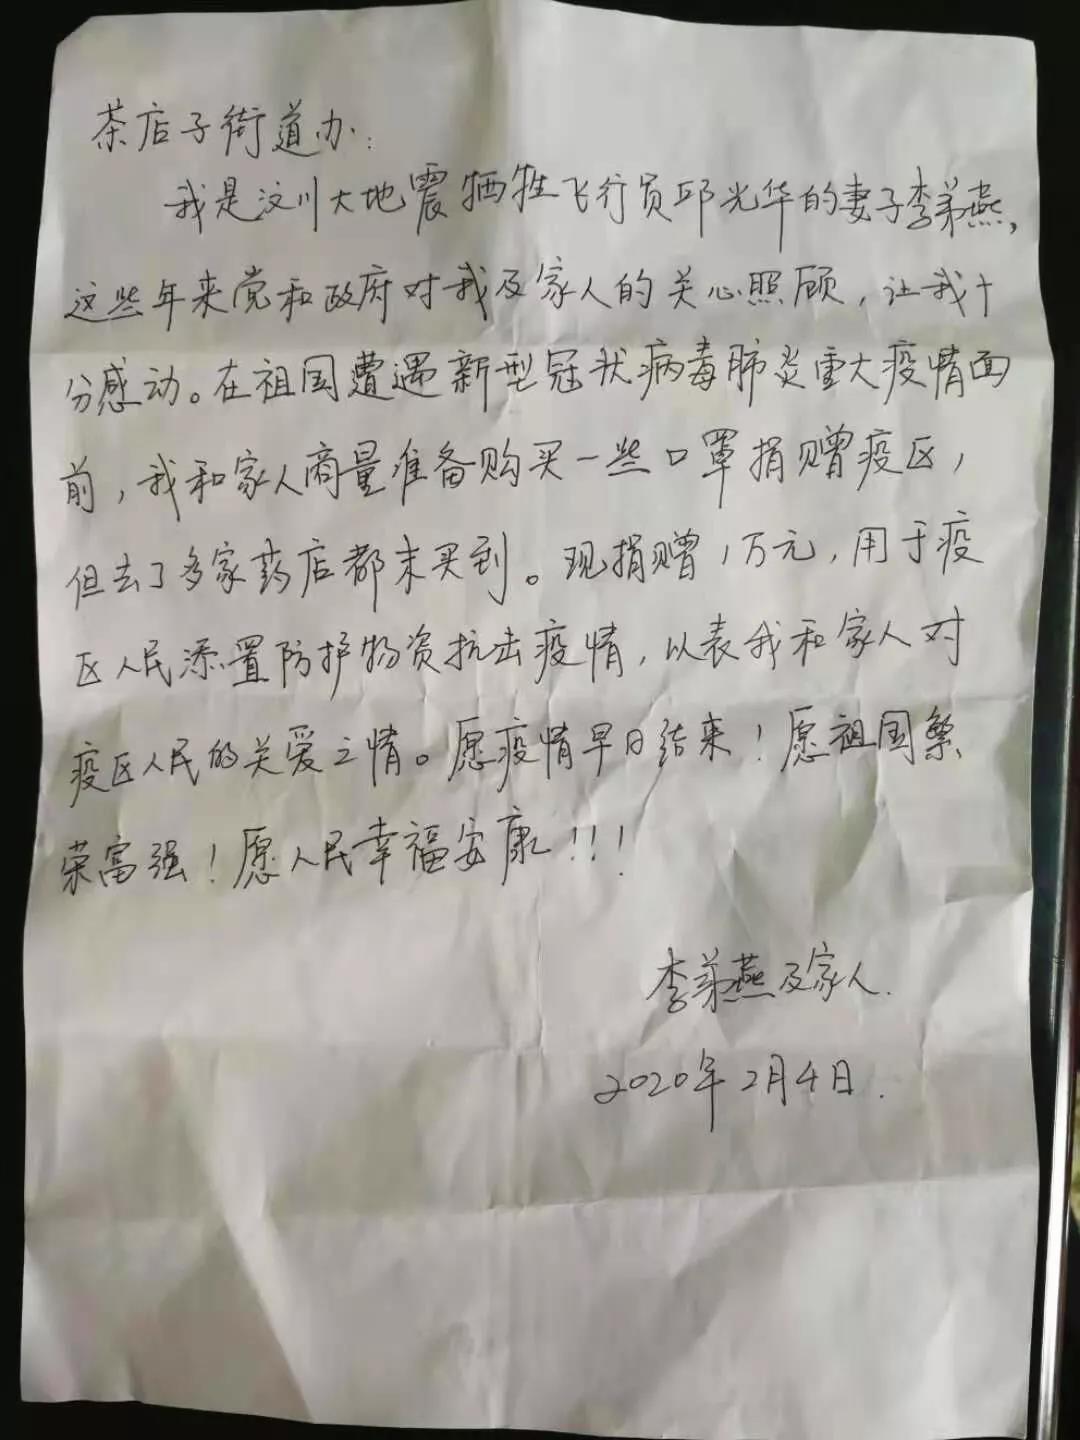 茶店子街道办:
我是汶川大地震牺牲飞行员邱光华的妻子李弟燕,
这些年来党和政府对我及家人的关心照顾,让我十
分感动。在祖国遭遇新型冠状病毒肺炎重大疫情面
前,我和家人商量准备购买一些口罩捐赠疫区,
但去了多家药店都未买到。现捐赠1万元,用于疫
区人民添置防护物资抗击疫情,以表我和家人对
疫区人民的关爱之情。愿疫情早日结束!愿祖国繁
荣富强!愿人民幸福安康!!!
李弟燕及家人.
2020年2月4日.